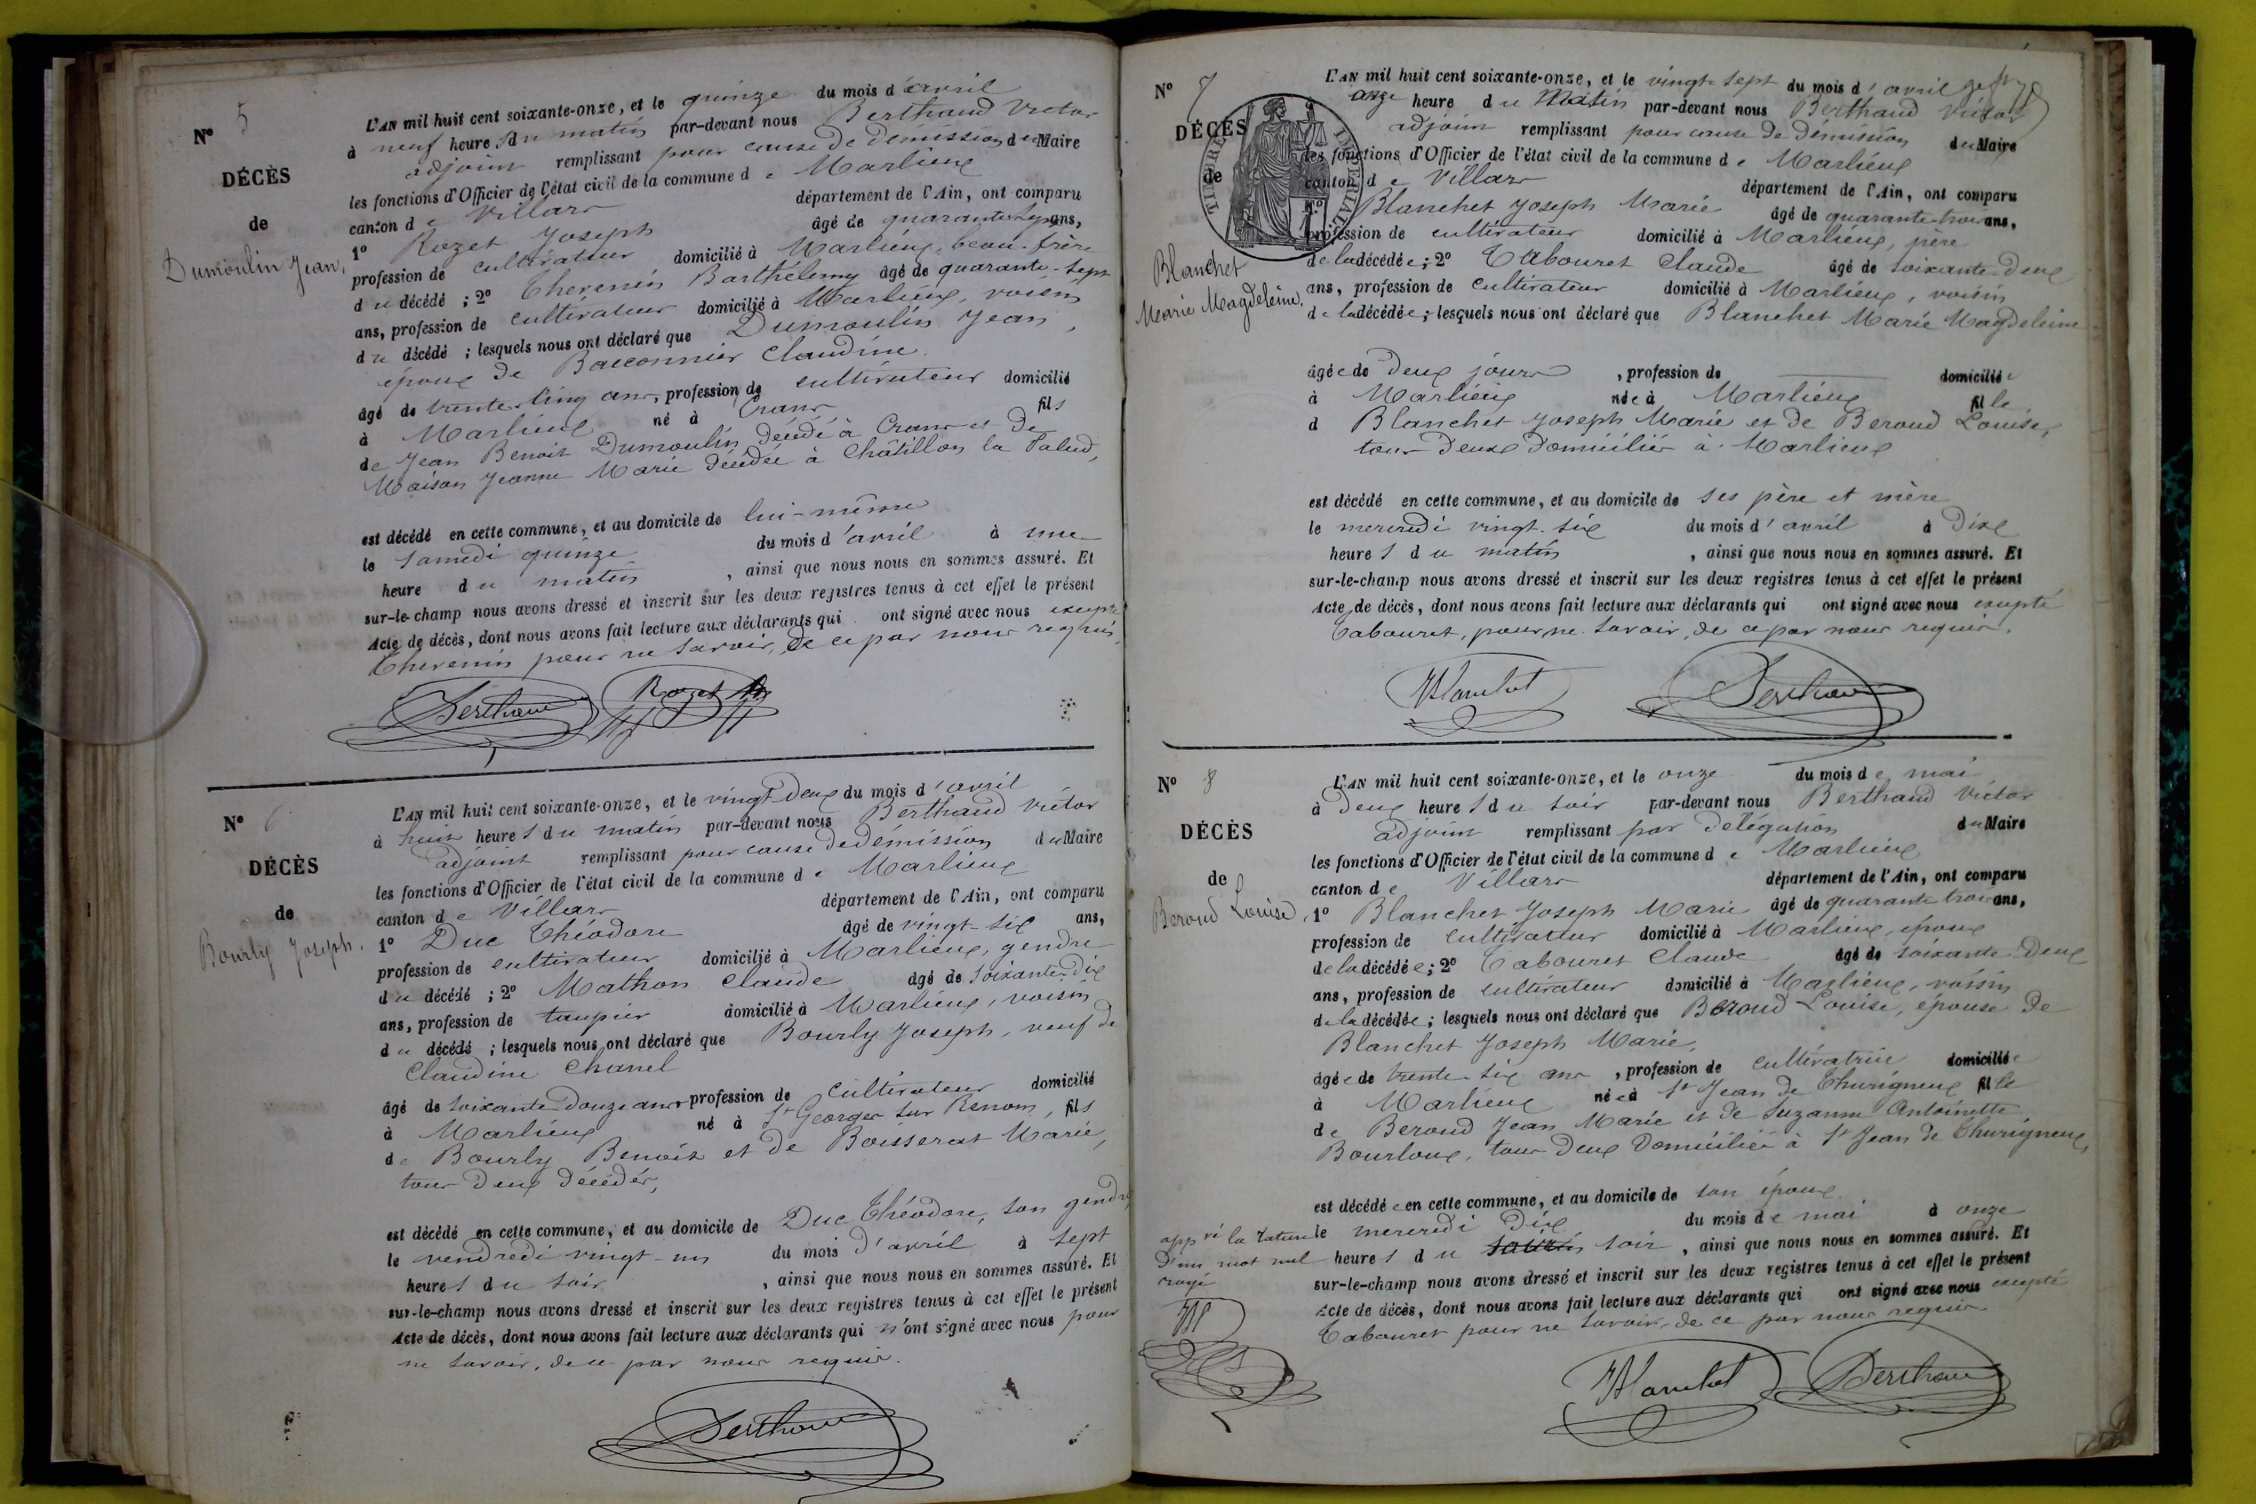 N° 5
DÉCÈS
de
Dumoulin Jean,
L'AN mil huit cent soixante-onze, et le quinze du mois d'avril
à neuf heures du matin par-devant nous Berthaud Victor
adjoint remplissant pour cause de démission du Maire
les fonctions d'Officier de l'état civil de la commune de Marlieux
canton de Villars département de l'Ain, ont comparu
1° Rozet Joseph âgé de quarante ans,
profession de cultivateur domicilié à Marlieux, beau-frère
du décédé ; 2° Thevenin Barthélemy âgé de quarante-sept
ans, profession de cultivateur domicilié à Marlieux, voisin
du décédé ; lesquels nous ont déclaré que Dumoulin Jean,
époux de Bacconnier Claudine
âgé de trente-cinq ans, profession de cultivateur domicilié
à Marlieux né à Crans fils
de Jean Benoit Dumoulin décédé à Crans et de
Maison Jeanne Marie décédée à Châtillon la Palud,
est décédé en cette commune, et au domicile de lui-même
le samedi quinze du mois d'avril à une
heure du matin, ainsi que nous nous en sommes assuré. Et
sur-le-champ nous avons dressé et inscrit sur les deux registres tenus à cet effet le présent
Acte de décès, dont nous avons fait lecture aux déclarants qui ont signé avec nous excepté
Thevenin pour ne savoir, de ce par nous requis.
Berthaud Rozet
N° 6
DÉCÈS
de
Bourly Joseph.
L'AN mil huit cent soixante-onze, et le vingt-deux du mois d'avril
à huit heures du matin par-devant nous Berthaud Victor
adjoint remplissant pour cause de démission du Maire
les fonctions d'Officier de l'état civil de la commune de Marlieux
canton de Villars département de l'Ain, ont comparu
1° Duc Théodore âgé de vingt-six ans,
profession de cultivateur domicilié à Marlieux, gendre
du décédé ; 2° Mathon Claude âgé de soixante-dix
ans, profession de taupier domicilié à Marlieux, voisin
du décédé ; lesquels nous ont déclaré que Bourly Joseph, veuf de
Claudine Chanel
âgé de soixante-douze ans profession de cultivateur domicilié
à Marlieux né à St Georges sur Renom, fils
de Bourly Benoit et de Boisserat Marie,
tous deux décédés,
est décédé en cette commune, et au domicile de Duc Théodore, son gendre
le vendredi vingt-un du mois d'avril à sept
heures du soir, ainsi que nous nous en sommes assuré. Et
sur-le-champ nous avons dressé et inscrit sur les deux registres tenus à cet effet le présent
Acte de décès, dont nous avons fait lecture aux déclarants qui n'ont signé avec nous pour
ne savoir, de ce par nous requis.
Berthaud
N° 7
DÉCÈS
de
TIMBRE IMPERIAL
Blanchet
Marie Magdeleine,
L'AN mil huit cent soixante-onze, et le vingt-sept du mois d'avril
à onze heure du matin par-devant nous Berthaud Victor
adjoint remplissant pour cause de démission du Maire
les fonctions d'Officier de l'état civil de la commune de Marlieux
canton de Villars département de l'Ain, ont comparu
1° Blanchet Joseph Marie âgé de quarante-trois ans,
profession de cultivateur domicilié à Marlieux, père
de la décédée ; 2° Tabouret Claude âgé de soixante-deux
ans, profession de cultivateur domicilié à Marlieux, voisin
de la décédée ; lesquels nous ont déclaré que Blanchet Marie Magdeleine
âgée de deux jours, profession de domiciliée
à Marlieux née à Marlieux fille
d Blanchet Joseph Marie et de Beroud Louise,
tous deux domiciliés à Marlieux
est décédé en cette commune, et au domicile de ses père et mère
le mercredi vingt-six du mois d'avril à dix
heures du matin, ainsi que nous nous en sommes assuré. Et
sur-le-champ nous avons dressé et inscrit sur les deux registres tenus à cet effet le présent
Acte de décès, dont nous avons fait lecture aux déclarants qui ont signé avec nous excepté
Tabouret, pour ne savoir, de ce par nous requis.
Blanchet Berthaud
N° 8
DÉCÈS
de
Beroud Louise,
L'AN mil huit cent soixante-onze, et le onze du mois de mai
à deux heures du soir par-devant nous Berthaud Victor
adjoint remplissant par délégation du Maire
les fonctions d'Officier de l'état civil de la commune de Marlieux
canton de Villars département de l'Ain, ont comparu
1° Blanchet Joseph Marie âgé de quarante trois ans,
profession de cultivateur domicilié à Marlieux, époux
de la décédée ; 2° Tabouret Claude âgé de soixante-deux
ans, profession de cultivateur domicilié à Marlieux, voisin
de la décédée ; lesquels nous ont déclaré que Beroud Louise, épouse de
Blanchet Joseph Marie,
âgée de trente-six ans, profession de cultivatrice domiciliée
à Marlieux née à St Jean de Thurigneux fille
de Beroud Jean Marie et de Suzanne Antoinette
Bourloux, tous deux domiciliés à St Jean de Thurigneux,
est décédée en cette commune, et au domicile de son époux
le mercredi dix du mois de mai à onze
heures du soir, ainsi que nous nous en sommes assuré. Et
sur-le-champ nous avons dressé et inscrit sur les deux registres tenus à cet effet le présent
Acte de décès, dont nous avons fait lecture aux déclarants qui ont signé avec nous excepté
Tabouret pour ne savoir, de ce par nous requis.
appvé la rature
d'un mot nul
rayé
Blanchet Berthaud